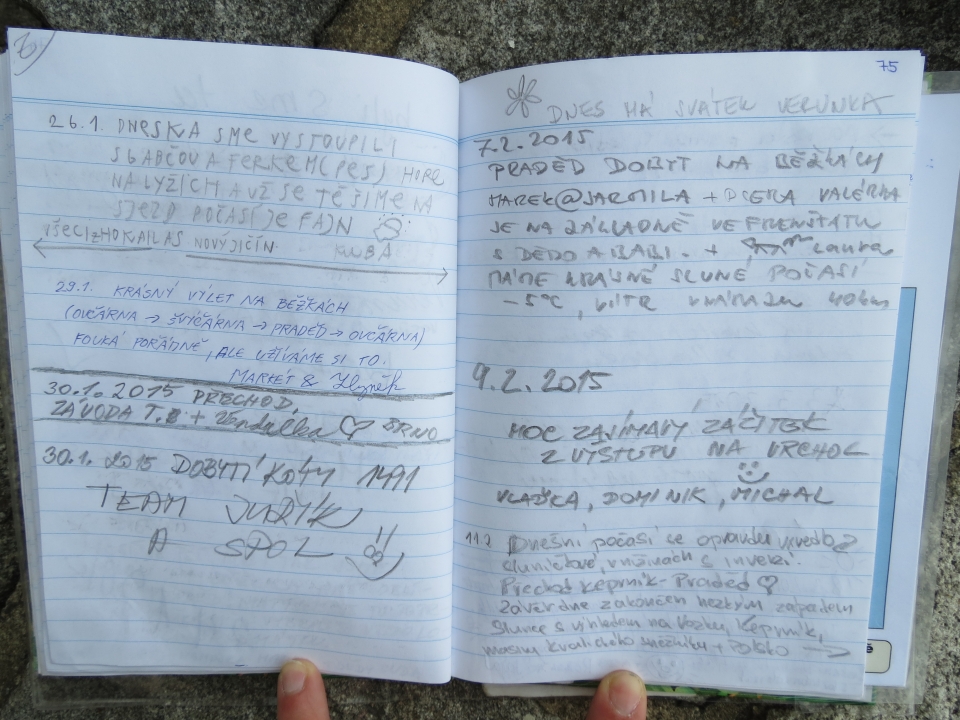 26.1. DNESKA SME VYSTOUPILI
S BABČOU A FERKEM (PES) HORE
NA LYŽÍCH A UŽ SE TĚŠÍME NA
SJEZD POČASÍ JE FAJN
VŠECI Z HOKAILAS NOVÝ JIČÍN KUBA
29.1. KRÁSNÝ VÝLET NA BĚŽKÁCH
(OVČÁRNA → ŠVÝČÁRNA → PRADĚD → OVČÁRNA)
FOUKÁ POŘÁDNĚ, ALE UŽÍVÁME SI TO.
MARKÉT & Zbyněk
30.1.2015 PŘECHOD.
ZÁVODA T.B + Vendulka ♡ BRNO
30.1. 2015 DOBYTÍ KÓTY 1491
TEAM JUŘÍK
A SPOL
75
DNES MÁ SVÁTEK VERUNKA
7.2.2015
PRADĚD DOBYT NA BĚŽKÁCH
MAREK@JARMILA + DCERA VALÉRKA
JE NA ZÁKLADNĚ VE FRENŠTÁTU
S DĚDO A BABI. + Laura
MÁME KRÁSNÉ SLUNÉ POČASÍ
-5°C, VITR
9.2.2015
MOC ZAJÍMAVÝ ZÁČÍTEK
Z VÝSTUPU NA VRCHOL
VLAĎKA, DOMINIK, MICHAL
11.2 Dnešní počasí se opravdu vyvedlo
sluníčkové, v nížinách s inverzí.
Přechod Keprník - Praděd ♡
Závěr dne zakončen hezkým západem
Slunce s výhledem na Vozku, Keprník,
masiv Kralického sněžníku + Polsko →